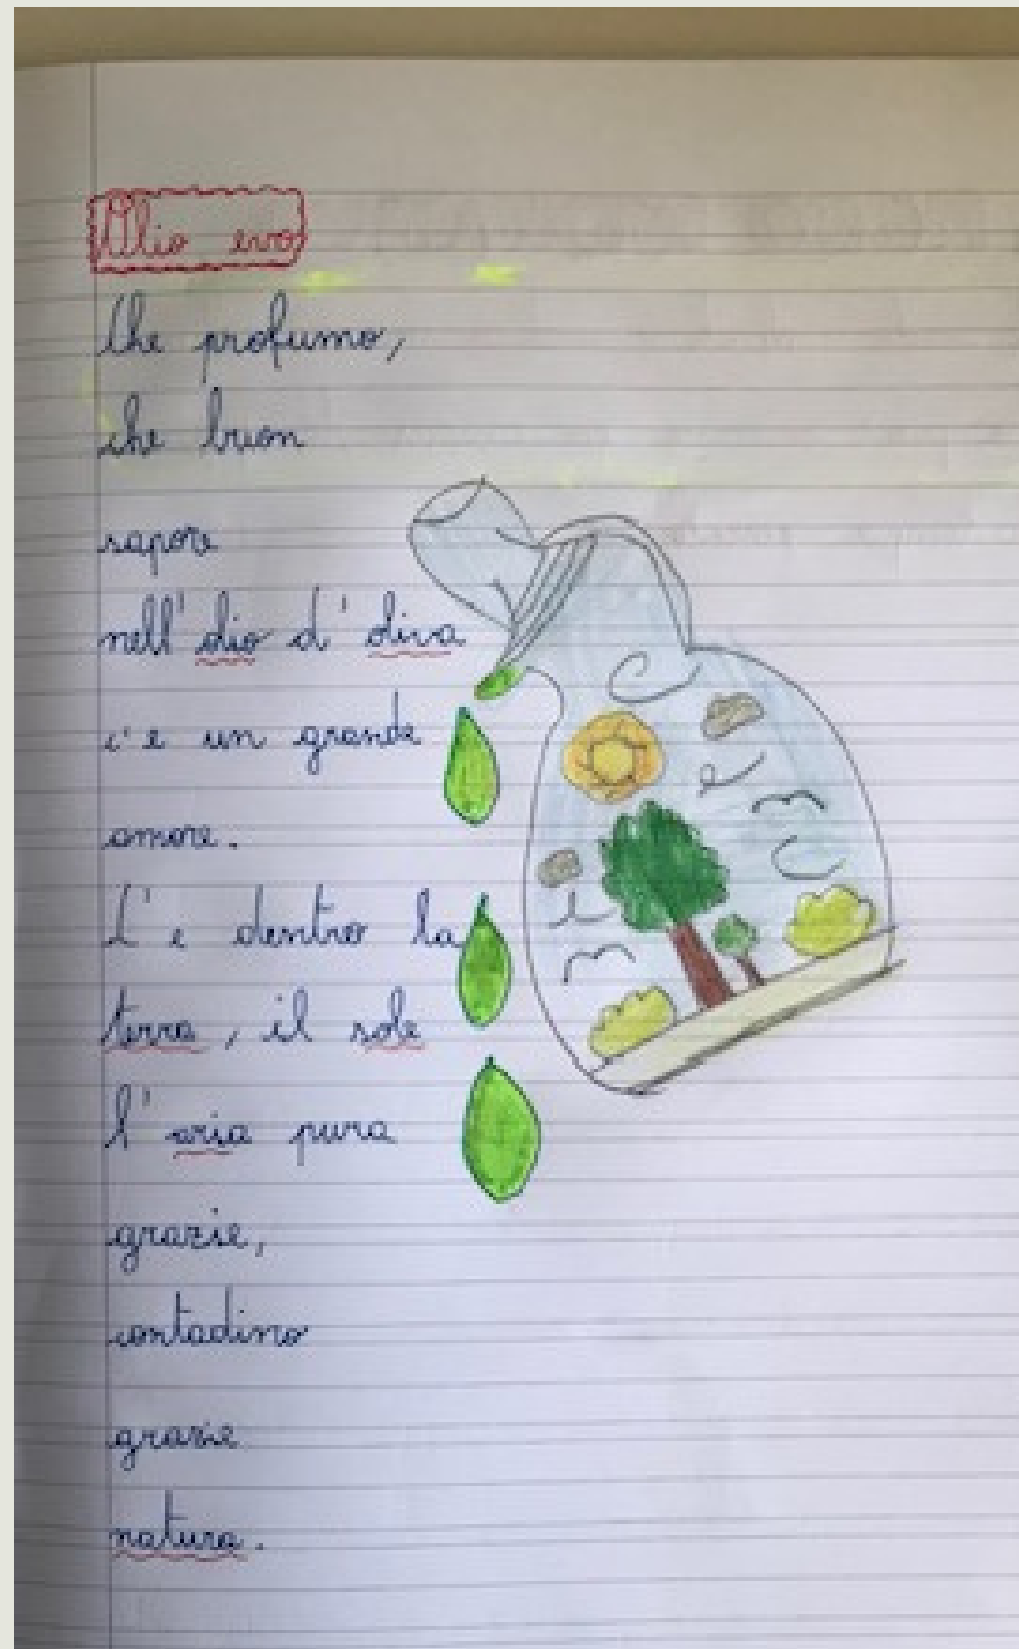 Olio evo
Che profumo,
che buon
sapore
nell'olio d'oliva
c'e un grande
amore.
C'e dentro la
terra, il sole
l'aria pura
grazie,
contadino
grazie
natura.